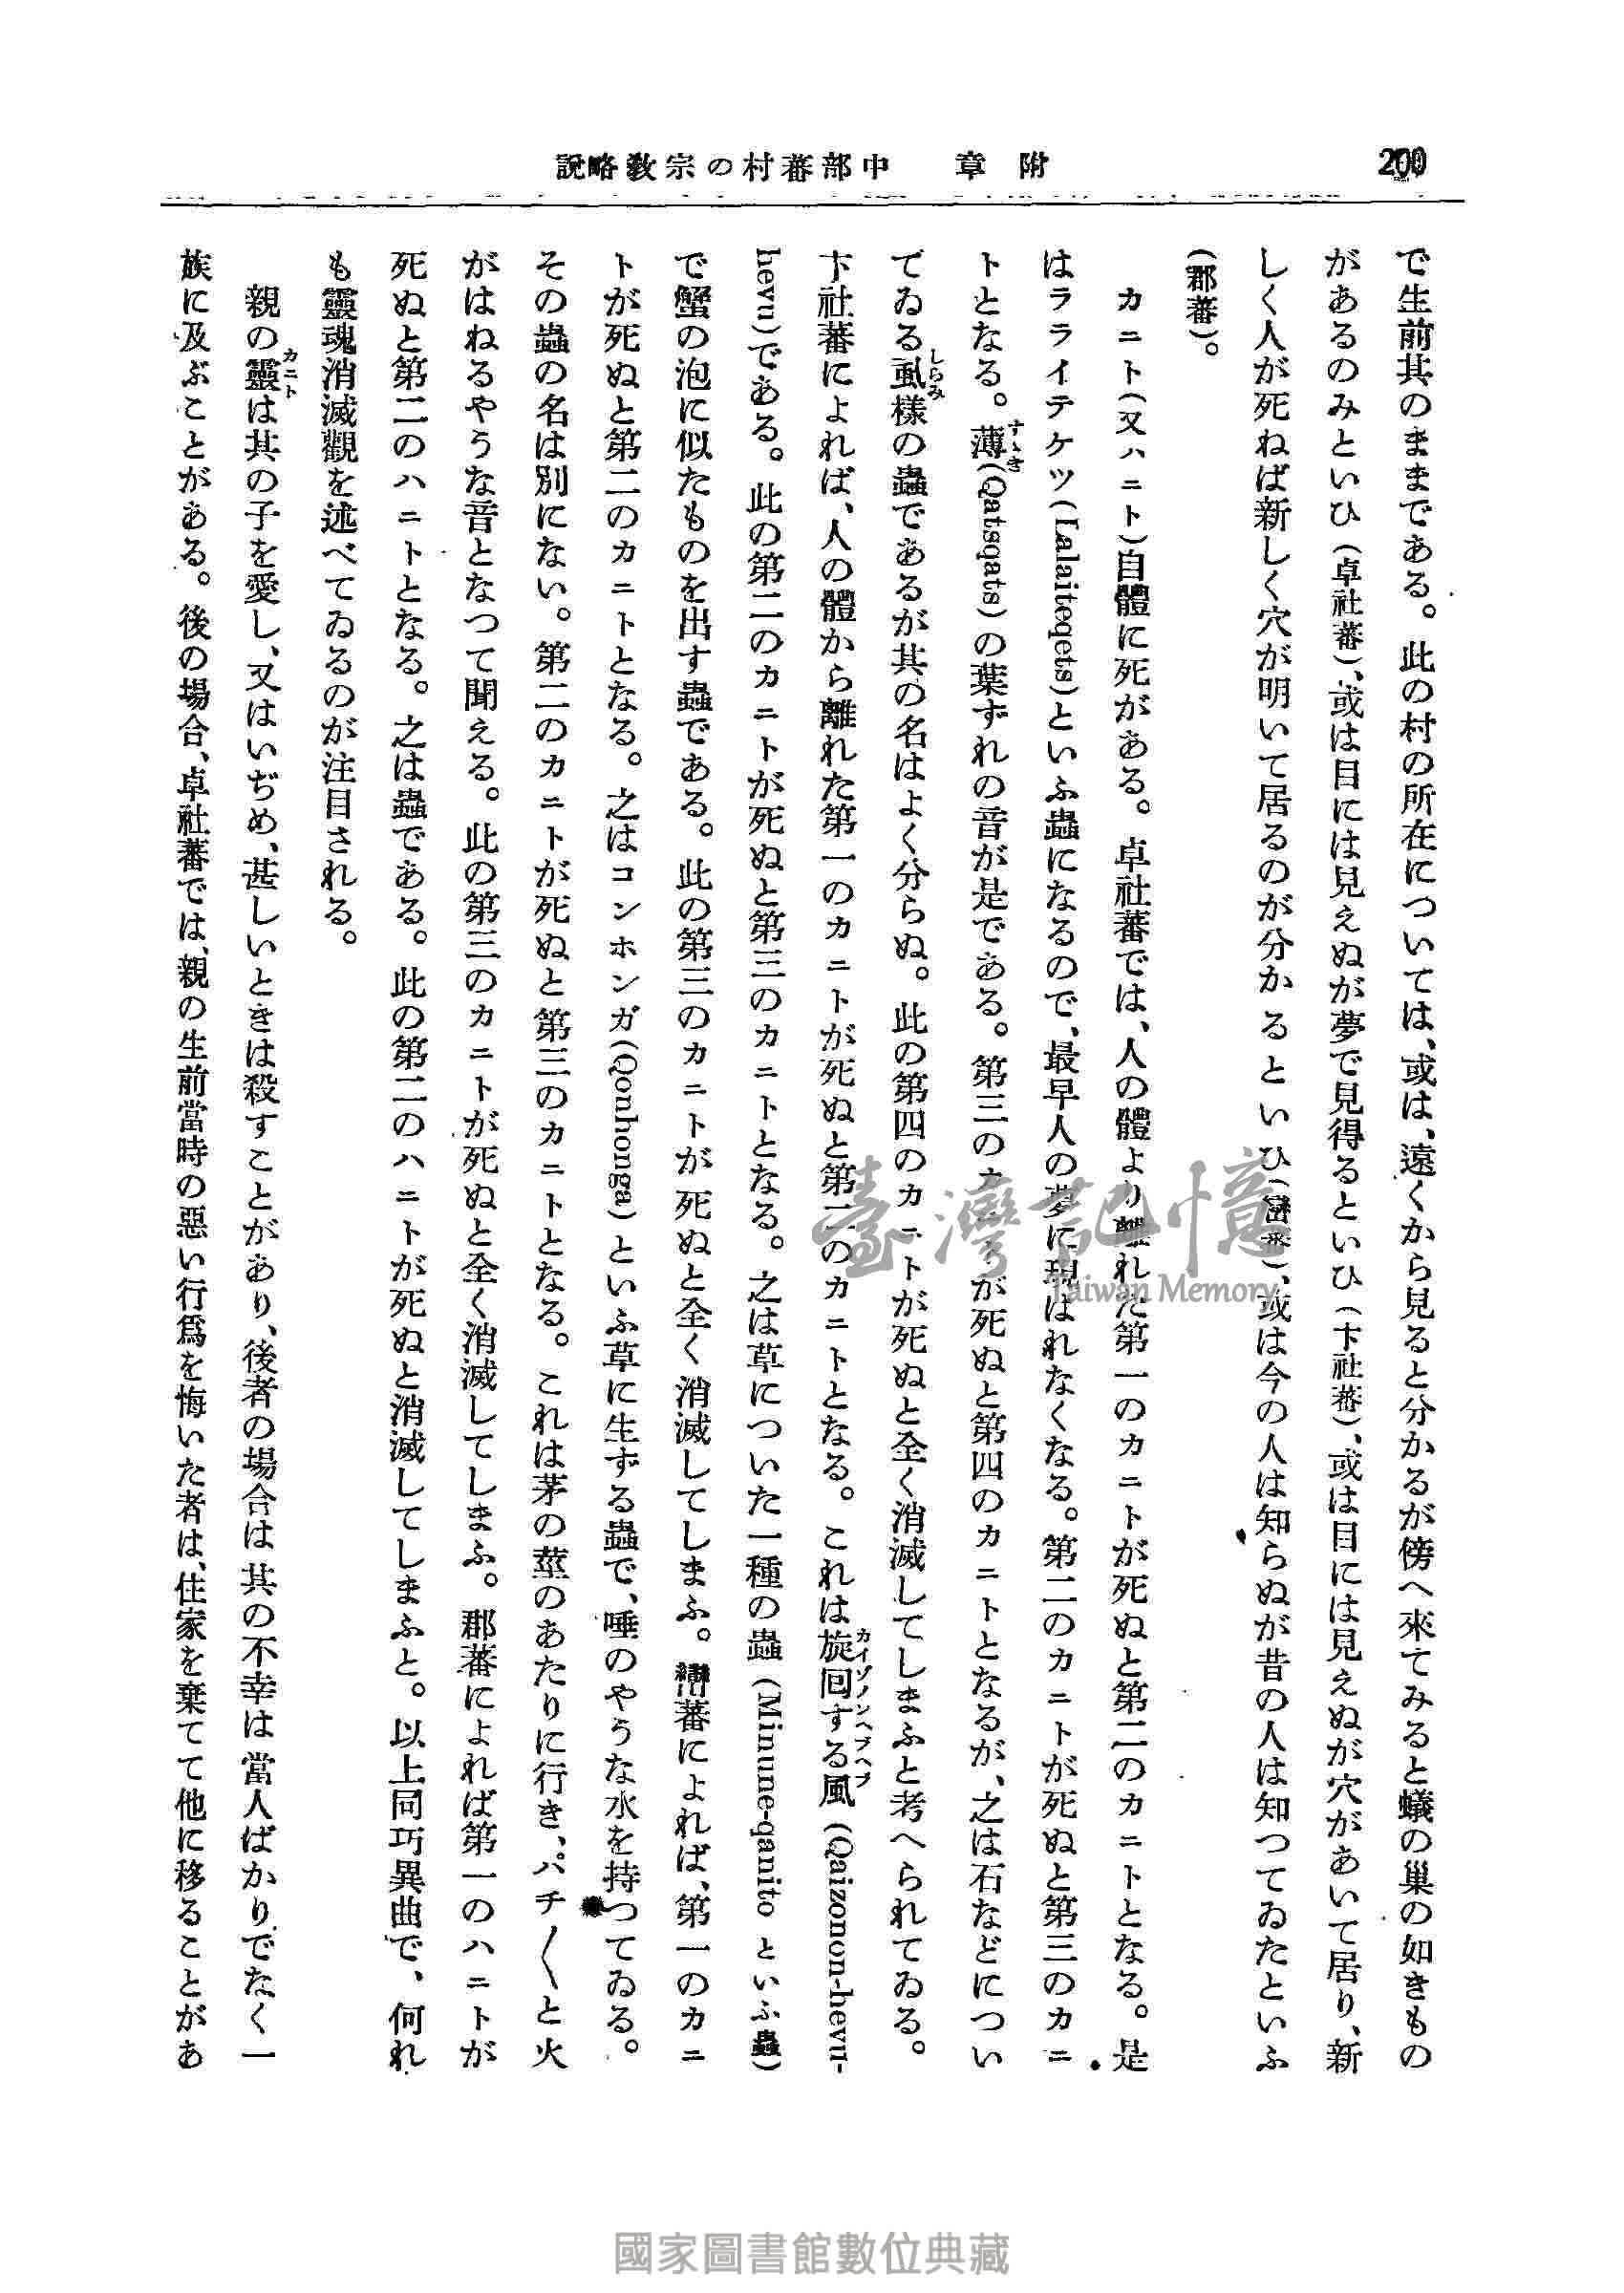 200
附章　中部蕃村の宗教略說
で生前其のままである。此の村の所在については、或は、遠くから見ると分かるが傍へ來てみると蟻の巢の如きもの
があるのみといひ（卓社蕃）、或は目には見えぬが夢で見得るといひ（卡社蕃）、或は目には見えぬが穴があいて居り、新
しく人が死ねば新しく穴が明いて居るのが分かるといひ（巒蕃）、或は今の人は知らぬが昔の人は知つてゐたといふ
（郡蕃）。
カニト（又ハニト）自體に死がある。卓社蕃では、人の體より離れた第一のカニトが死ぬと第二のカニトとなる。是
はラライテケツ(Lalaiteqets)といふ蟲になるので、最早人の夢に現はれなくなる。第二のカニトが死ぬと第三のカニ
トとなる。薄(Qatsqats)の葉ずれの音が是である。第三のカニトが死ぬと第四のカニトとなるが、之は石などについ
すゝき
てゐる虱樣の蟲であるが其の名はよく分らぬ。此の第四のカニトが死ぬと全く消滅してしまふと考へられてゐる。
しらみ
卡社蕃によれば、人の體から離れた第一のカニトが死ぬと第二のカニトとなる。これは旋回する風(Qaizonon-hevu-
カイゾノンヘブヘブ
hevu)である。此の第二のカニトが死ぬと第三のカニトとなる。之は草についた一種の蟲(Minune-qanito といふ蟲)
で蟹の泡に似たものを出す蟲である。此の第三のカニトが死ぬと全く消滅してしまふ。巒蕃によれば、第一のカニ
トが死ぬと第二のカニトとなる。之はコンホンガ(Qonhonga)といふ草に生ずる蟲で、唾のやうな水を持つてゐる。
その蟲の名は別にない。第二のカニトが死ぬと第三のカニトとなる。これは茅の莖のあたりに行き、パチ〳〵と火
がはねるやうな音となつて聞える。此の第三のカニトが死ぬと全く消滅してしまふ。郡蕃によれば第一のハニトが
死ぬと第二のハニトとなる。之は蟲である。此の第二のハニトが死ぬと消滅してしまふと。以上同巧異曲で、何れ
も靈魂消滅觀を述べてゐるのが注目される。
親の靈は其の子を愛し、又はいぢめ、甚しいときは殺すことがあり、後者の場合は其の不幸は當人ばかりでなく一
カニト
族に及ぶことがある。後の場合、卓社蕃では、親の生前當時の惡い行爲を悔いた者は、住家を棄てて他に移ることがあ
臺灣記憶
Taiwan Memory
國家圖書館數位典藏